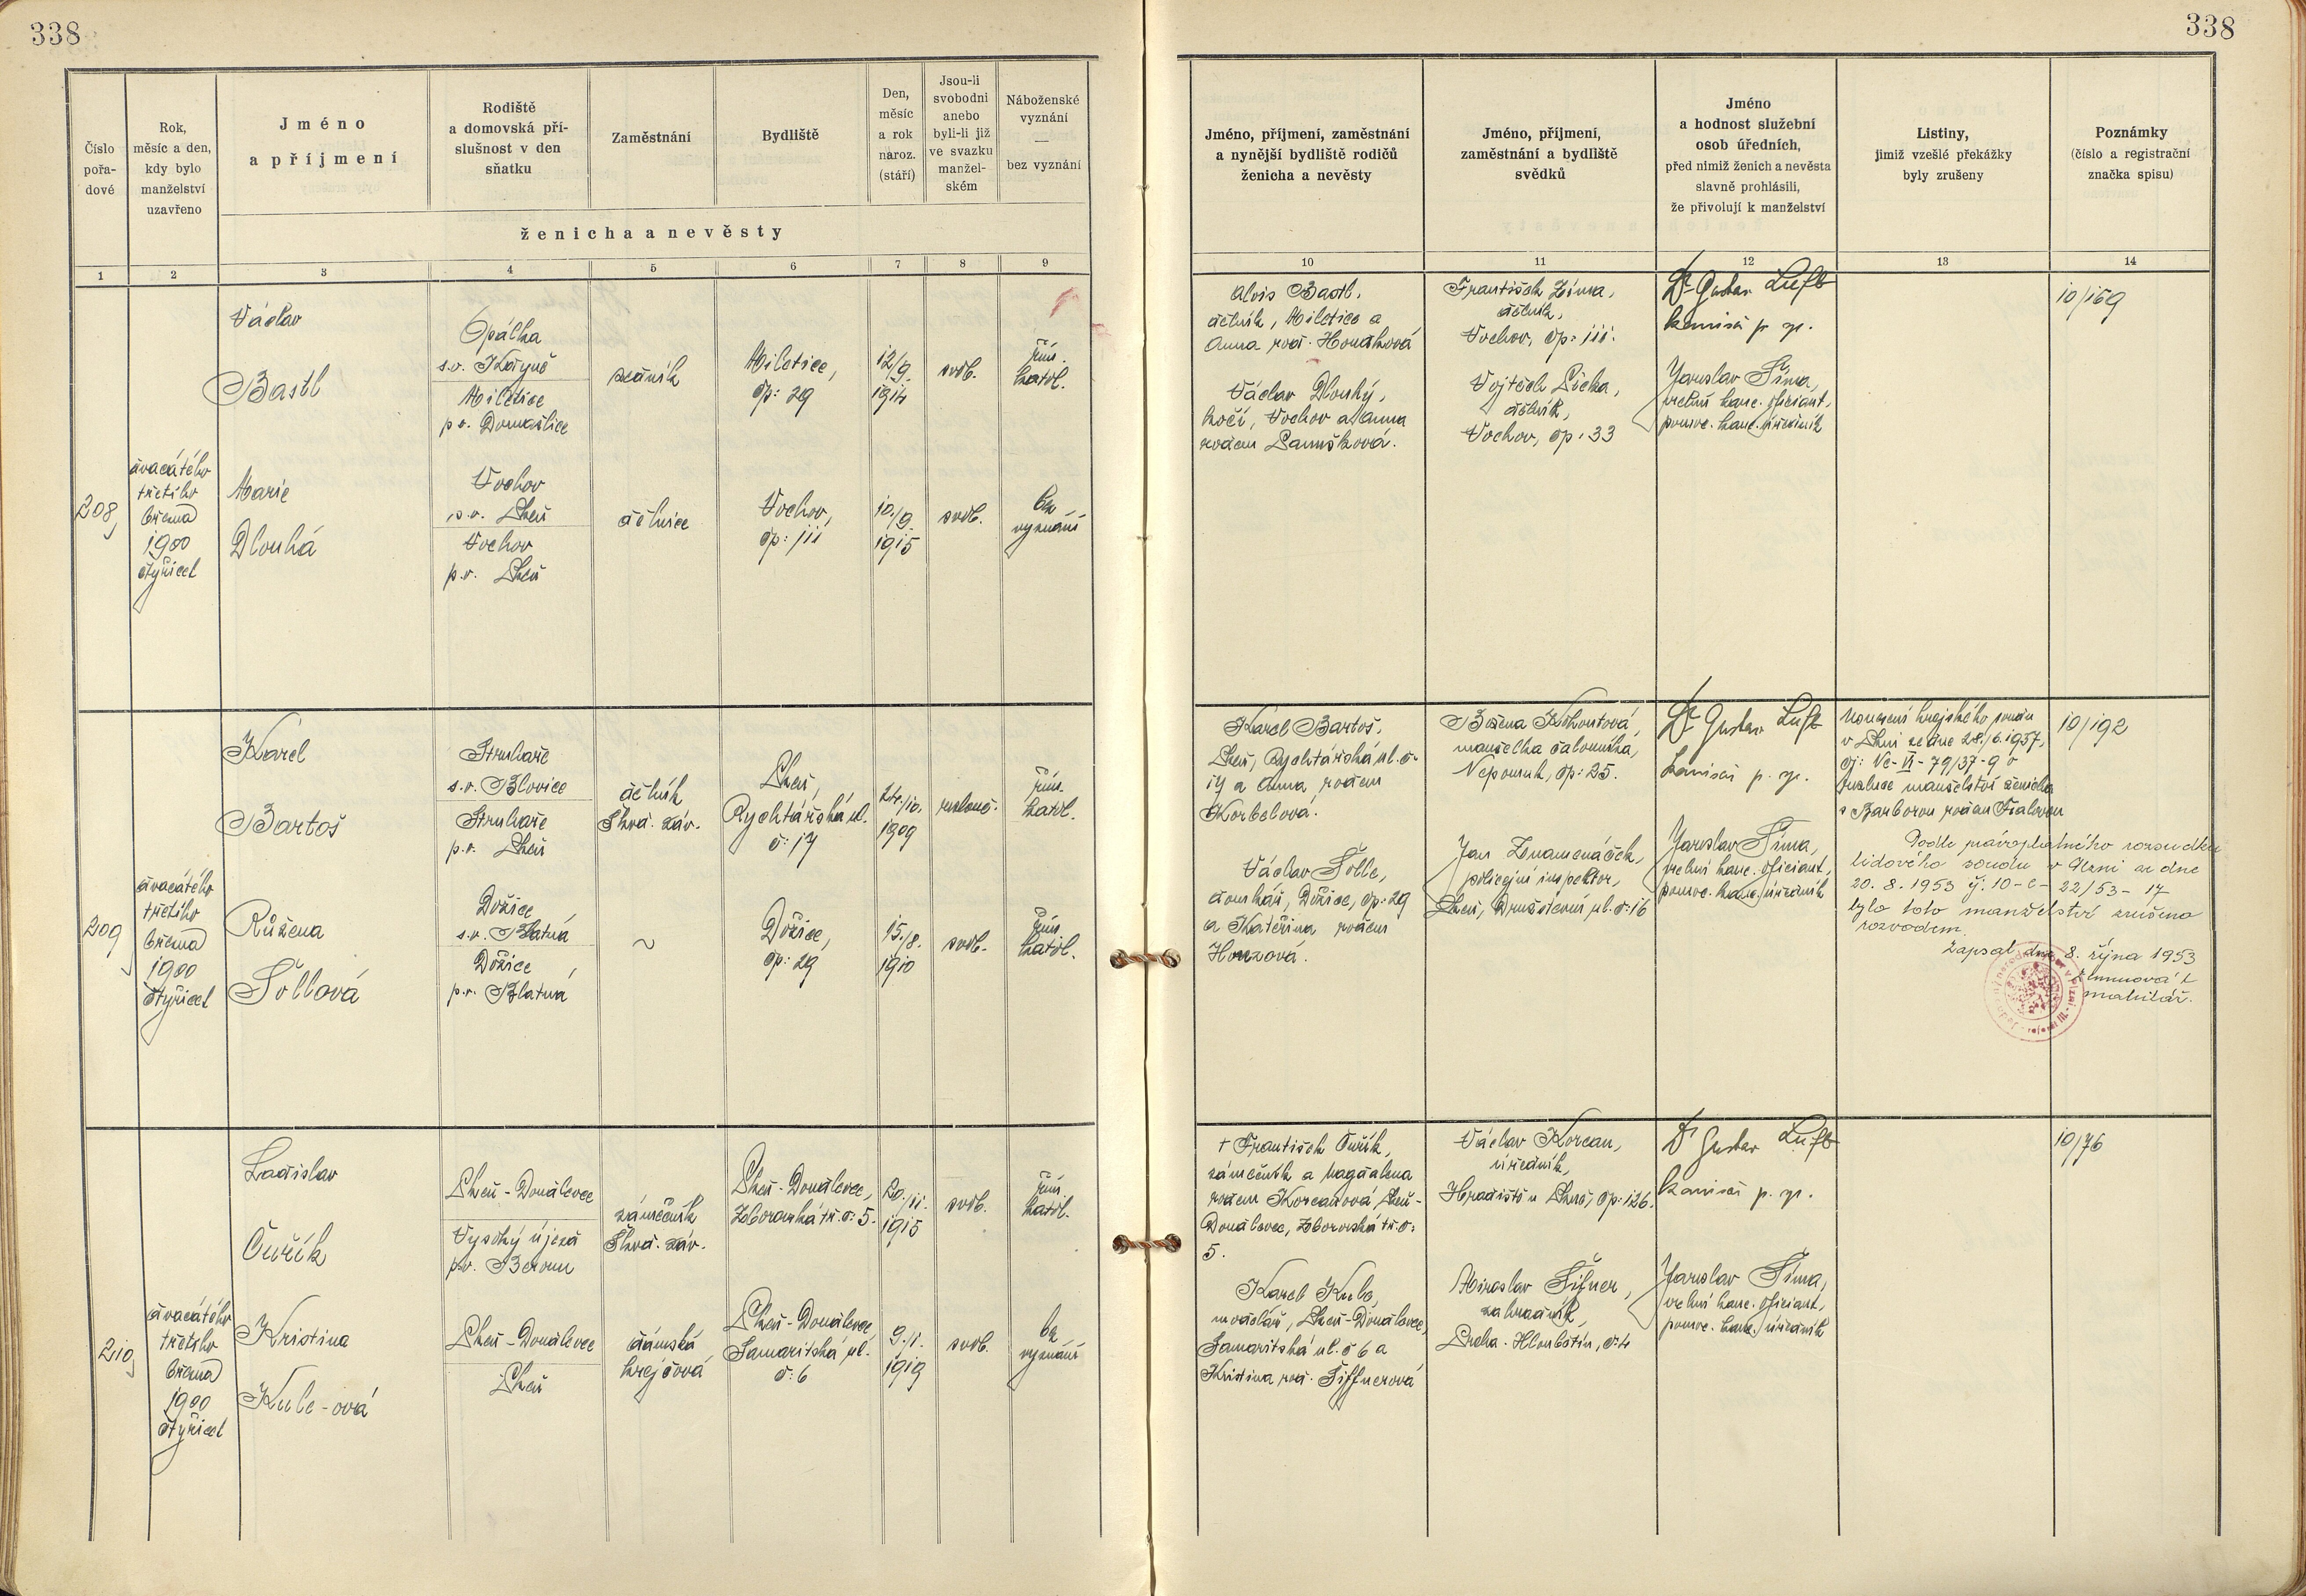 338
338
Číslo
pořa-
dové
Rok,
měsíc a den,
kdy bylo
manželství
uzavřeno
Jméno
a příjmení
Rodiště
a domovská pří-
slušnost v den
sňatku
Zaměstnání
Bydliště
Den,
měsíc
a rok
naroz.
(stáří)
Jsou-li
svobodni
anebo
byli-li již
ve svazku
manžel-
ském
Náboženské
vyznání
—
bez vyznání
ženicha a nevěsty
Jméno, příjmení, zaměstnání
a nynější bydliště rodičů
ženicha a nevěsty
Jméno, příjmení,
zaměstnání a bydliště
svědků
Jméno
a hodnost služební
osob úředních,
před nimiž ženich a nevěsta
slavně prohlásili,
že přivolují k manželství
Listiny,
jimiž vzešlé překážky
byly zrušeny
Poznámky
(číslo a registrační
značka spisu)
1 2 3 4 5 6 7 8 9 10 11 12 13 14
208
dvacátého
třetího
března
1900
čtyřicet
Václav
Bastl
Opálka
s.o. Kdyně
Miletice
p.o. Domažlice
zedník
Miletice,
čp: 29
12/9.
1914
svob.
řím.
katol.
Marie
Dlouhá
Vochov
s.o. Plzeň
Vochov
p.o. Plzeň
dělnice
Vochov,
čp: 111
10./9.
1915
svob.
bez
vyznání
Alois Bastl,
dělník, Miletice a
Anna roz.
Václav Dlouhý,
kočí, Vochov a Anna
rozen
František Zíma,
dělník,
Vochov, čp: 111.
Vojtěch
dělník,
Vochov, čp: 33
Dr Gustav Luft
komisař p. ř.
Jaroslav Šíma,
vrchní kanc. oficiant,
pomoc. kanc. úředník
10/169
209
dvacátého
třetího
března
1900
čtyřicet
Karel
Bartoš
Struhaře
s.o. Blovice
Struhaře
p.o. Plzeň
dělník
Škod. záv.
Plzeň,
Rychtářská ul.
č: 17
24./10.
1909
rozlouč.
řím.
katol.
Růžena
Šollová
Dožice,
s.o. Blatná
Dožice,
p.o. Blatná
~
Dožice,
čp: 29
15./8.
1910
svob.
řím.
katol.
Karel Bartoš,
Plzeň, Rychtářská ul. č.
17 a Anna rozen
Korbelová.
Václav Šolle,
domkář, Dožice, čp: 29
a Kateřina rozen
Honzová.
Božena Kohoutová,
manželka čalouníka,
Nepomuk, čp: 25.
Jan Znamenáček,
policejní inspektor,
Plzeň, Družstevní ul. č: 16
Dr Gustav Luft
komisař p. ř.
Jaroslav Šíma,
vrchní kanc. oficiant,
pomoc. kanc. úředník
Usnesení krajského soudu
v Plzni ze dne 28./6. 1937,
čj: Nc-VI-79/37-9 o
rozluce manželství ženicha
s Barborou rozen
Podle pravoplatného rozsudku
lidového soudu v Plzni ze dne
20. 8. 1953 čj. 10-C-22/53-17
bylo toto manželství zrušeno
rozvodem.
Zapsal dne 8. října 1953
matrikář.
10/192
210
dvacátého
třetího
března
1900
čtyřicet
Ladislav
Čuřík
Plzeň-Doudlevce
Vysoký újezd
p.o. Beroun
zámečník
Škod. záv.
Plzeň-Doudlevce,
Zborovská tř. č: 5.
20./11.
1915
svob.
řím.
katol.
Kristina
Kule-ová
Plzeň-Doudlevce
Plzeň
dámská
krejčová
Plzeň-Doudlevce
Samaritská ul.
č: 6
9./1.
1919
svob.
bez
vyznání
† František Čuřík,
zámečník a Magdalena
rozen Korcanová, Plzeň-
Doudlevce, Zborovská tř. č:
5.
Karel Kule,
modelář, Plzeň-Doudlevce,
Samaritská ul. č 6 a
Kristina roz. Šiffnerová
Václav Korcan,
úředník,
Hradiště u Plzně, čp: 126.
Miroslav Šifner,
zahradník,
Praha-Hloubětín, č: 4
Dr Gustav Luft
komisař p. ř.
Jaroslav Šíma,
vrchní kanc. oficiant,
pomoc. kanc. úředník
10/76